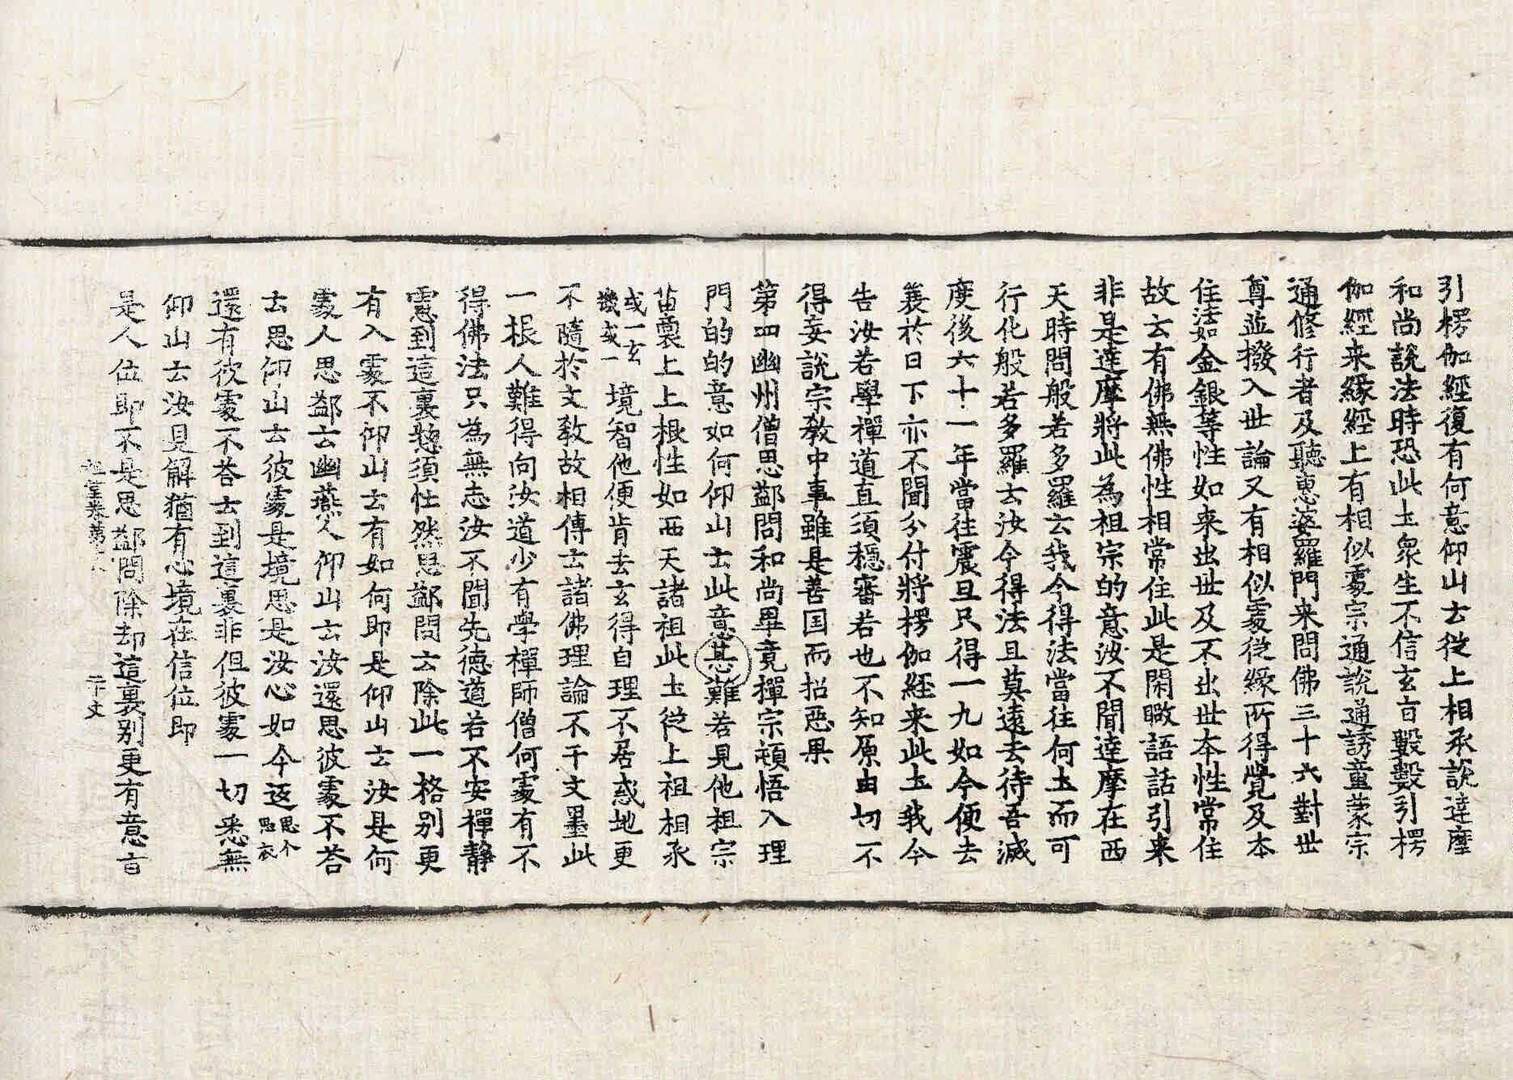 引楞伽經復有何意仰山云從上相承說達摩
和尚說法時恐此土衆生不信玄言數數引楞
伽經来緣經上有相似處宗通說通誘童蒙宗
通修行者及聽惠婆羅門来問佛三十六對世
尊並撥入世論又有相似處從緣所得覺及本
住法如金銀等性如来出世及不出世本性常住
故云有佛無佛性相常住此是閑瞰語話引来
非是達摩將此為祖宗的意汝不聞達摩在西
天時問般若多羅云我今得法當往何土而可
行化般若多羅云汝今得法且莫遠去待吾滅
度後六十一年當往震旦只得一九如今便去
衰於日下亦不聞分付將楞伽経来此土我今
告汝若學禪道直須穩審若也不知原由切不
得妄說宗教中事雖是善因而招惡果
第四幽州僧思䣭問和尚畢竟禪宗頓悟入理
門的的意如何仰山云此意甚難若見他祖宗
苗裔上上根性如西天諸祖此土從上祖相承
或一玄機或一境智他便肯去玄得自理不居惑地更
不隨於文教故相傳云諸佛理論不干文墨此
一根人難得向汝道少有學禪師僧何處有不
得佛法只為無志汝不聞先德道若不安禪静
慮到這裏惣須忙然思䣭問云除此一格別更
有入處不仰山云有如何即是仰山云汝是何
處人思䣭云幽燕人仰山云汝還思彼處不荅
云思仰山云彼處是境思是汝心如今返思个思底
還有彼處不荅云到這裏非但彼處一切悉無
仰山云汝見解猶有心境在信位即
是人位即不是思䣭問除却這裏別更有意旨
祖堂卷第十八 二十丈